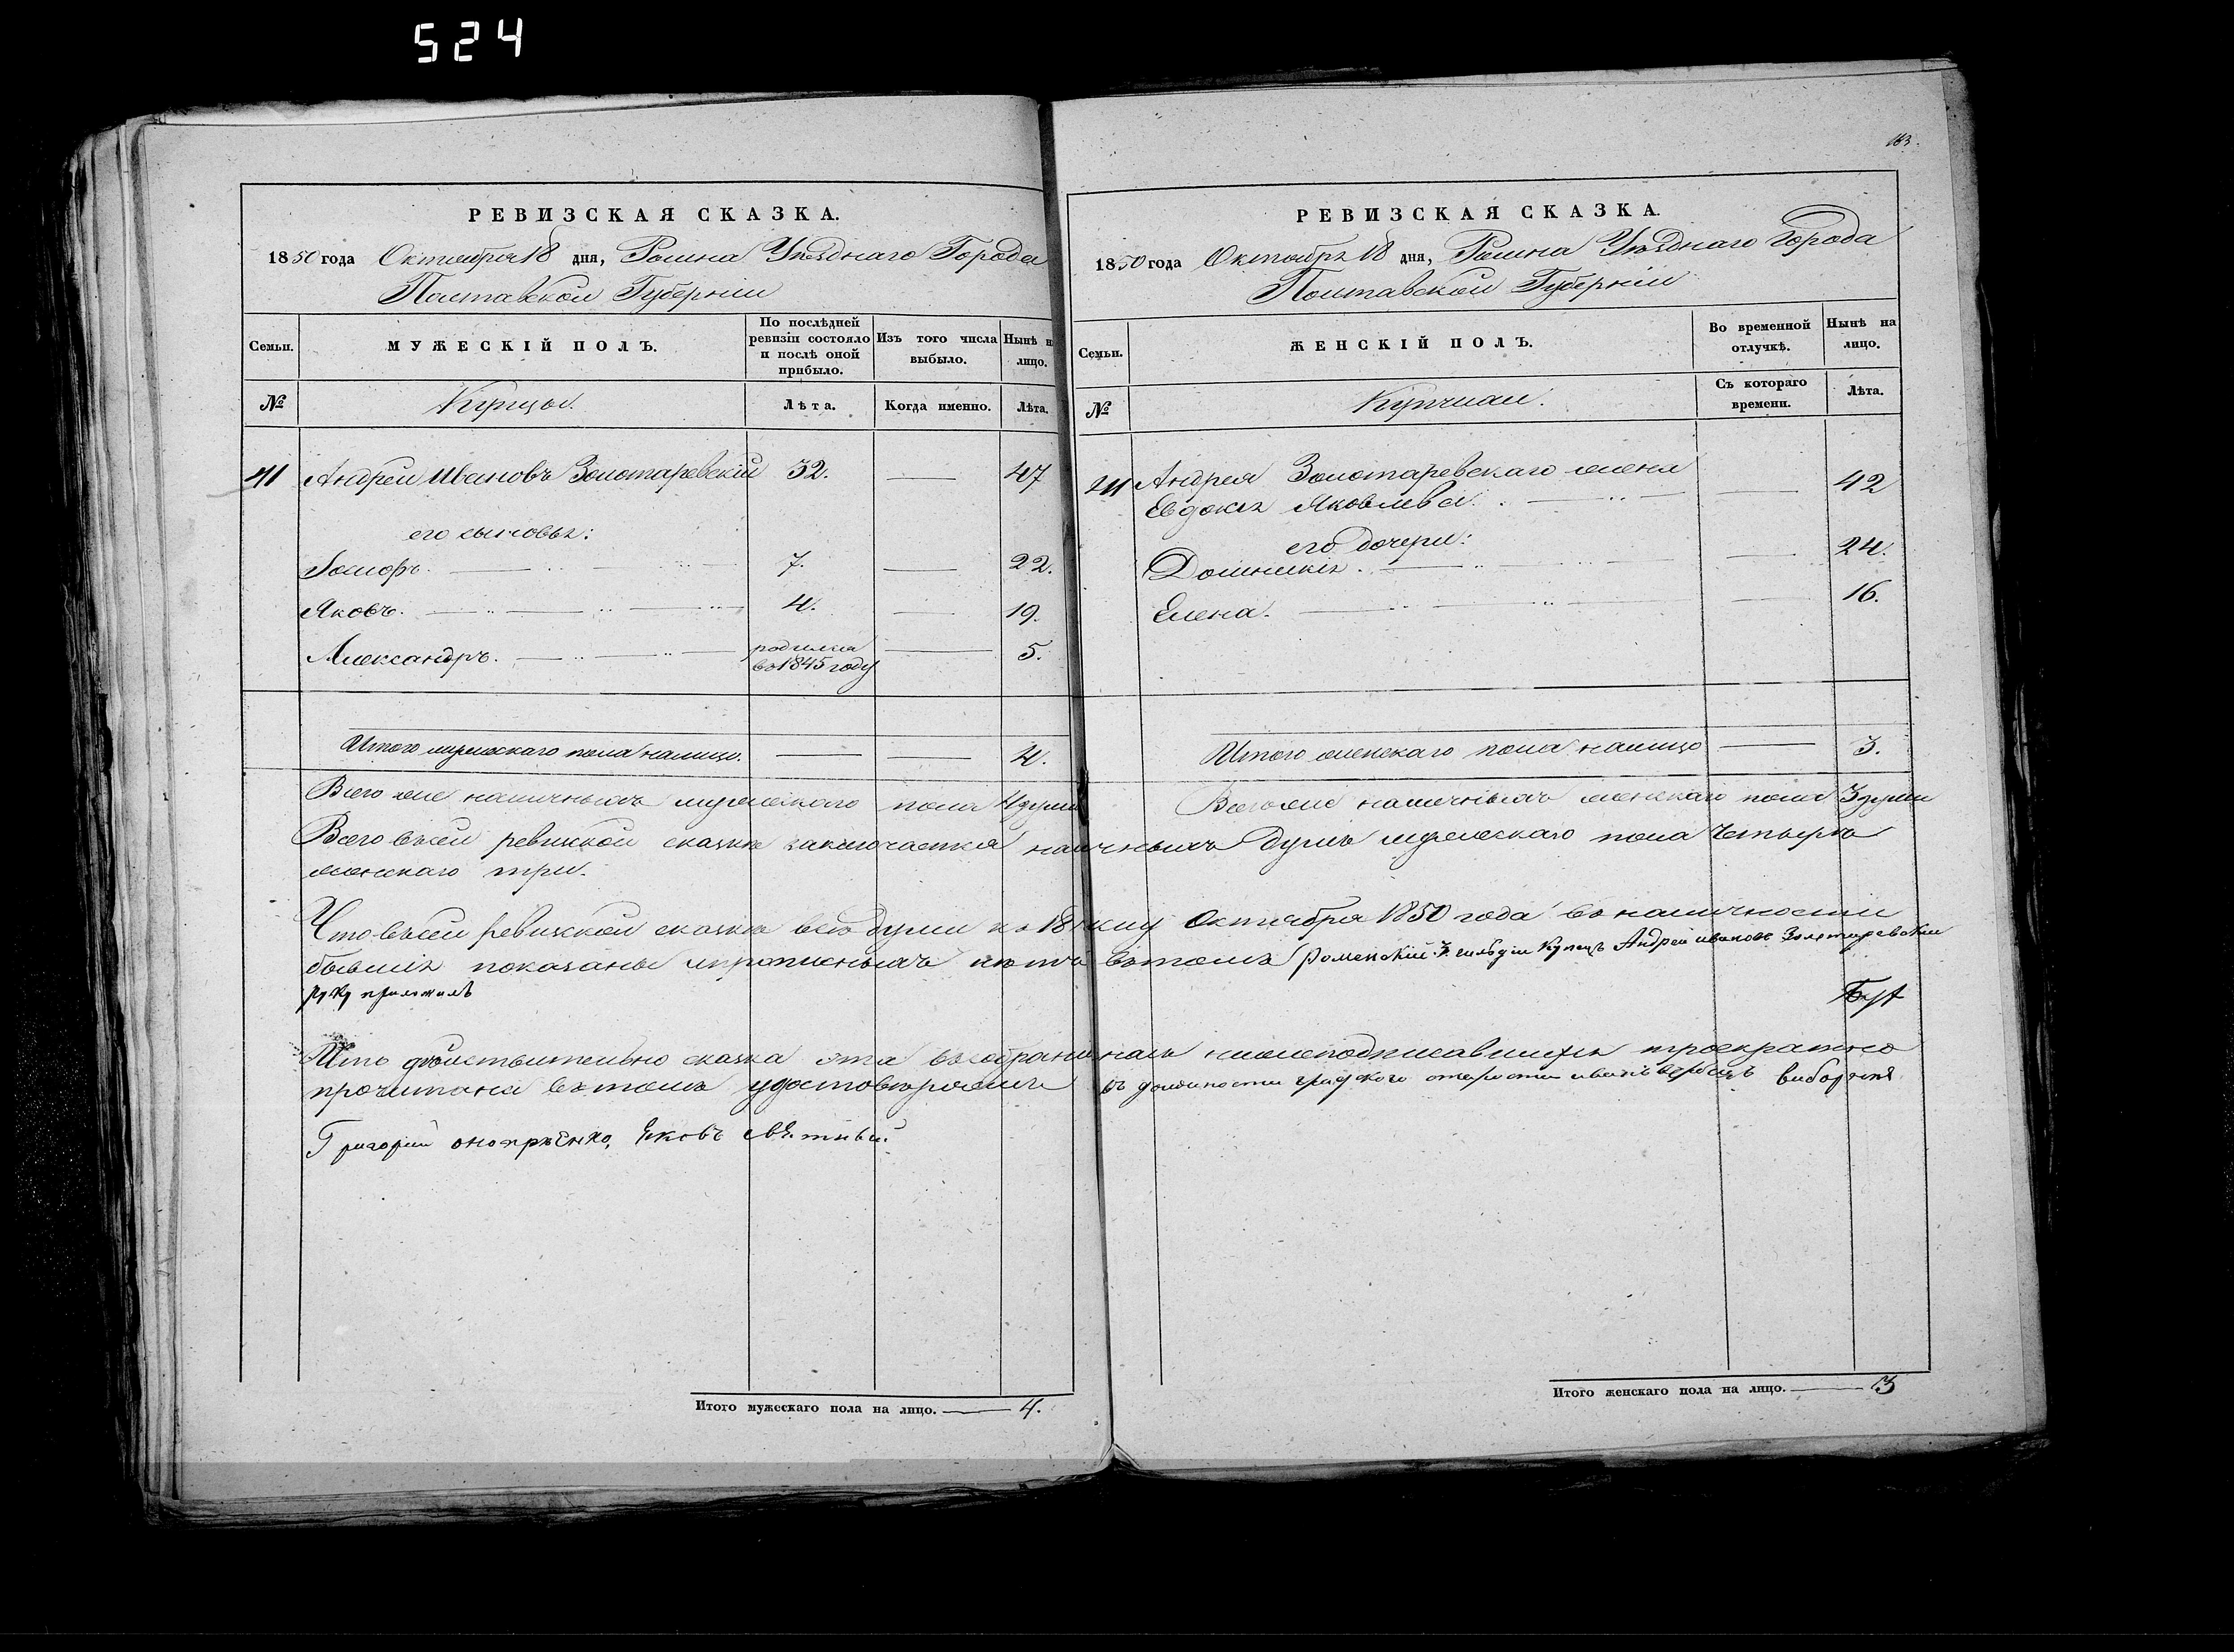 524
РЕВИЗСКАЯ СКАЗКА.
1850 года Октября 18 дня, Ромна Уѣзднаго Города
Полтавской Губерніи
Семьи.
МУЖЕСКІЙ ПОЛЪ.
По послѣдней ревизіи состояло и послѣ оной прибыло.
Изъ того числа выбыло.
Нынѣ н лицо.
№
Купцы.
Лѣта.
Когда именно.
Лѣта.
41 Андрей Ивановъ Золотаревскій 32. 47
его сыновья:
Іосифъ. 7. 22.
Яковъ. 4. 19.
Александръ. родился въ 1845 году 5.
Итого мужескаго пола налицо. 4.
Всего же наличныхъ мужескаго пола 4 души
Всего въ сей ревизской сказкѣ заключается наличныхъ душъ мужескаго пола четыре
женскаго три.
Что въ сей ревизской сказкѣ всѣ души къ 18 числу Октября 1850 года въ наличности
бывшія показаны и прописныхъ нѣтъ въ томъ Роменскій 3 гильдіи Купецъ Андрей иванове Золотаревскій
руку приложилъ
Что действительно сказка эта въ собраніи нижеподписавшихся троекратно
прочитана въ томъ удостовѣряемъ въ должности градского старости иванъ выборния
Григорий оноприенко, Яковъ
Итого мужескаго пола на лицо. 4.
183.
РЕВИЗСКАЯ СКАЗКА.
1850 года Октября 18 дня, Ромна Уѣзднаго Города
Полтавской Губерніи
Семьи.
ЖЕНСКІЙ ПОЛЪ.
Во временной отлучкѣ.
Нынѣ на лицо.
№
Купчихи.
Съ котораго времени.
Лѣта.
41 Андрея Золотаревскаго жена
Евдокія Яковлева. 42
его дочери:
Домникія. 24.
Елена. 16.
Итого женскаго пола налицо 3.
Всего же наличныхъ женскаго пола 3 души
Итого женскаго пола на лицо. 3